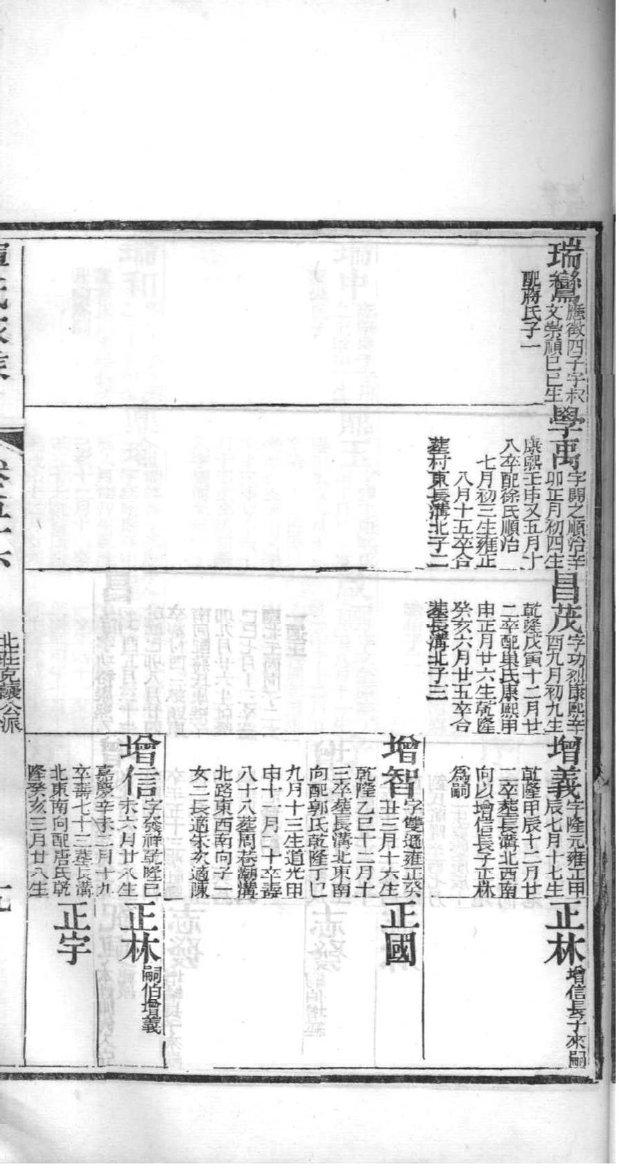 瑞鸞
應徵四子字叔
文崇禎己巳生
配蔣氏子一
學禹
字聞之順治辛
卯正月初四生
康熙壬申又五月十
八卒配徐氏順治
七月初三生雍正
八月十五卒合
葬村東長溝北子二
昌茂
字功烈康熙辛
酉九月初九生
乾隆戊寅十二月廿
二卒配巢氏康熙甲
申正月廿六生乾隆
癸亥六月廿五卒合
葬長溝北子三
增義
字隆元雍正甲
辰七月十七生
乾隆甲辰十二月廿
二卒葬長溝北西南
向以增信長子正林
為嗣
正林
增信長子來嗣
增智
字雙通雍正癸
丑三月十六生
乾隆乙巳十二月十
三卒葬長溝北東南
向配郭氏乾隆丁巳
九月十三生道光甲
申十月二十卒壽
八十八葬周巷
北路東西南向子一
女二長適朱次適陳
正國
增信
字發祥乾隆己
未六月廿八生
嘉慶辛未二月十九
卒壽七十三葬長溝
北東南向配唐氏乾
隆癸亥三月廿八生
正林
嗣伯增義
正宇
氏家乘
卷五十六
北莊克讓公派
九